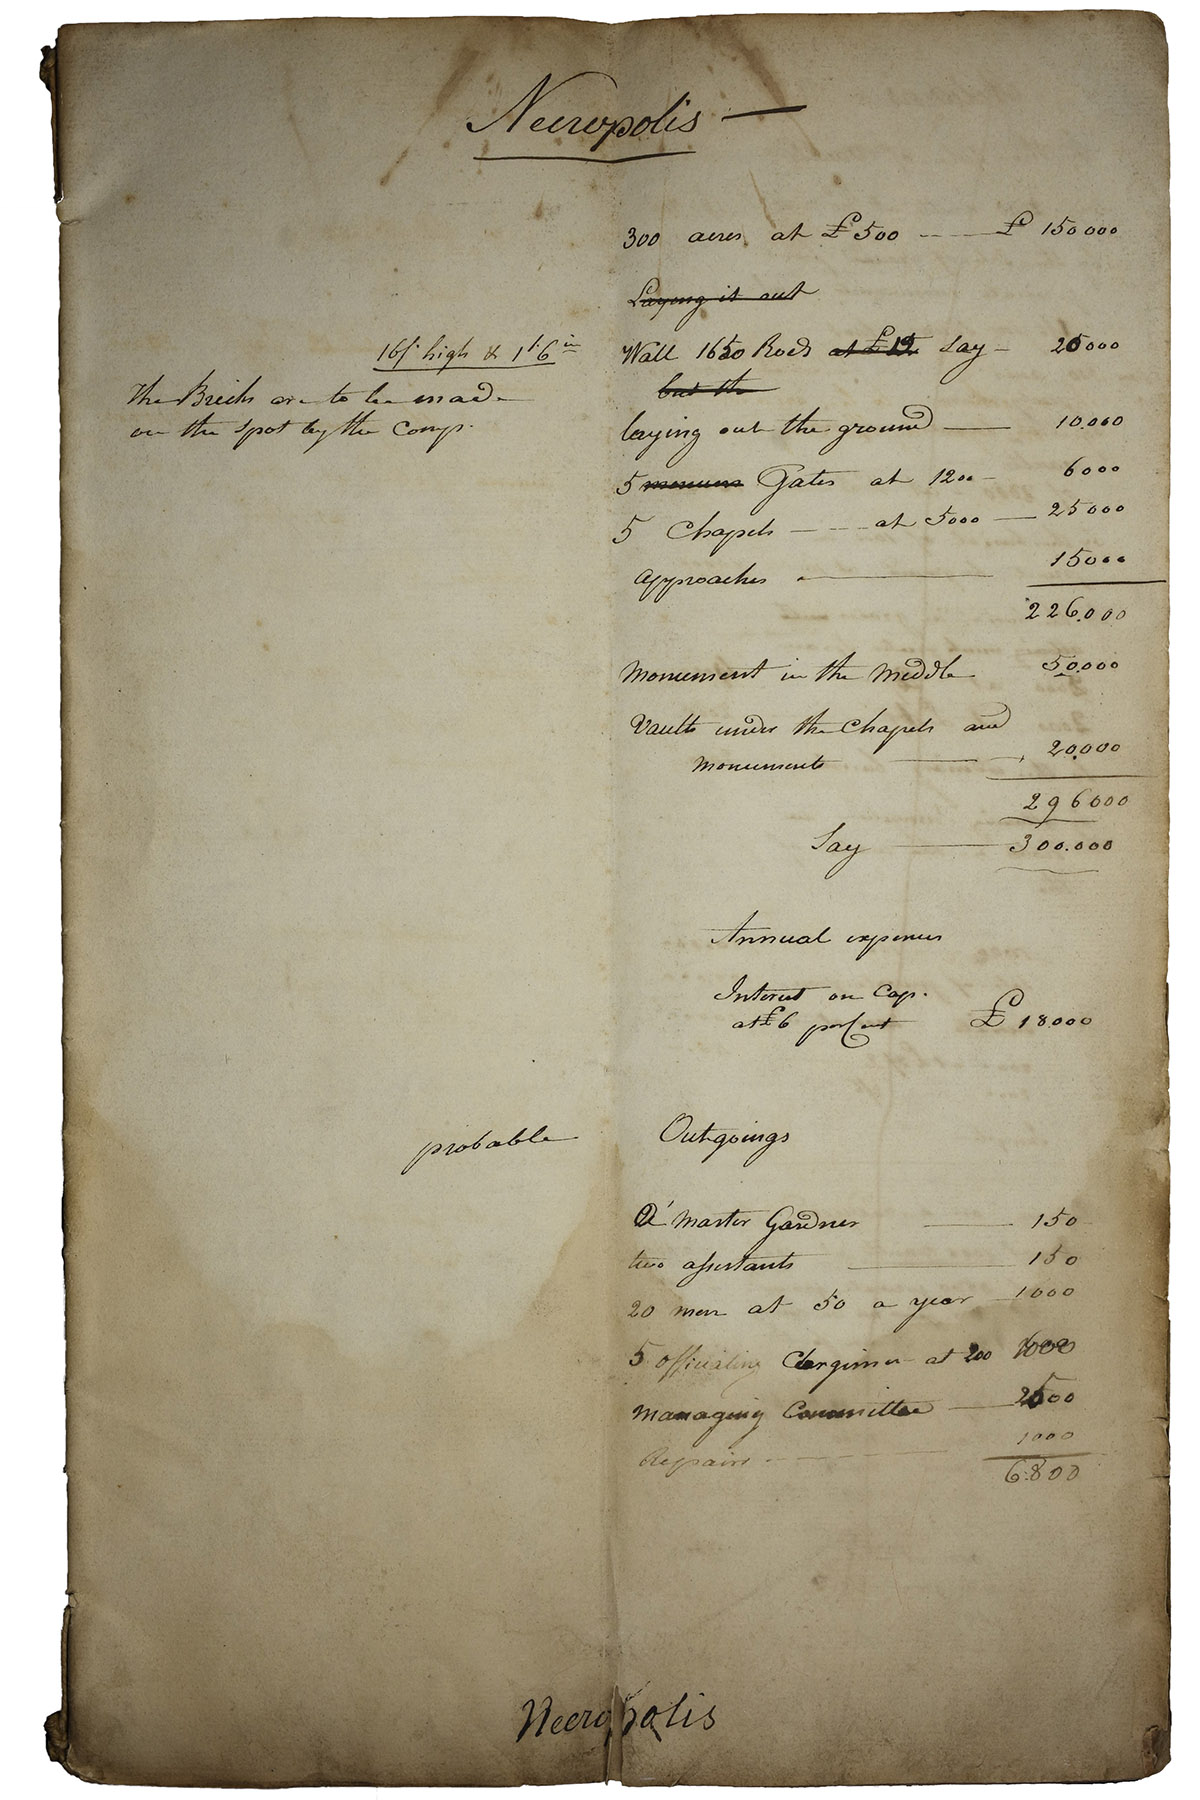 Necropolis —
300 acres at £500 - - — £ 150000
Laying it out
16f. high & 1f. 6in
Wall 1650 Rods at £12 Say - 20000
but the
The Bricks are to be made
on the spot by the Comp.
laying out the ground — 10.000
5 Gates at 1200 - 6000
5 Chapels — - - at 5000 — 25000
Approaches — 15000
226.000
Monument in the Middle 50.000
Vaults under the Chapels and
Monuments — 20.000
296000
Say — 300.000
Annual expenses
Interest on Cap.
at £6 per Cent £ 18000
probable
Outgoings
A Master Gardner — 150
two assistants — 150
20 men at 50 a year — 1000
5 officiating Clergimen at 200 1000
Managing Committee — 2500
Repairs - - — 1000
6.800
Necropolis